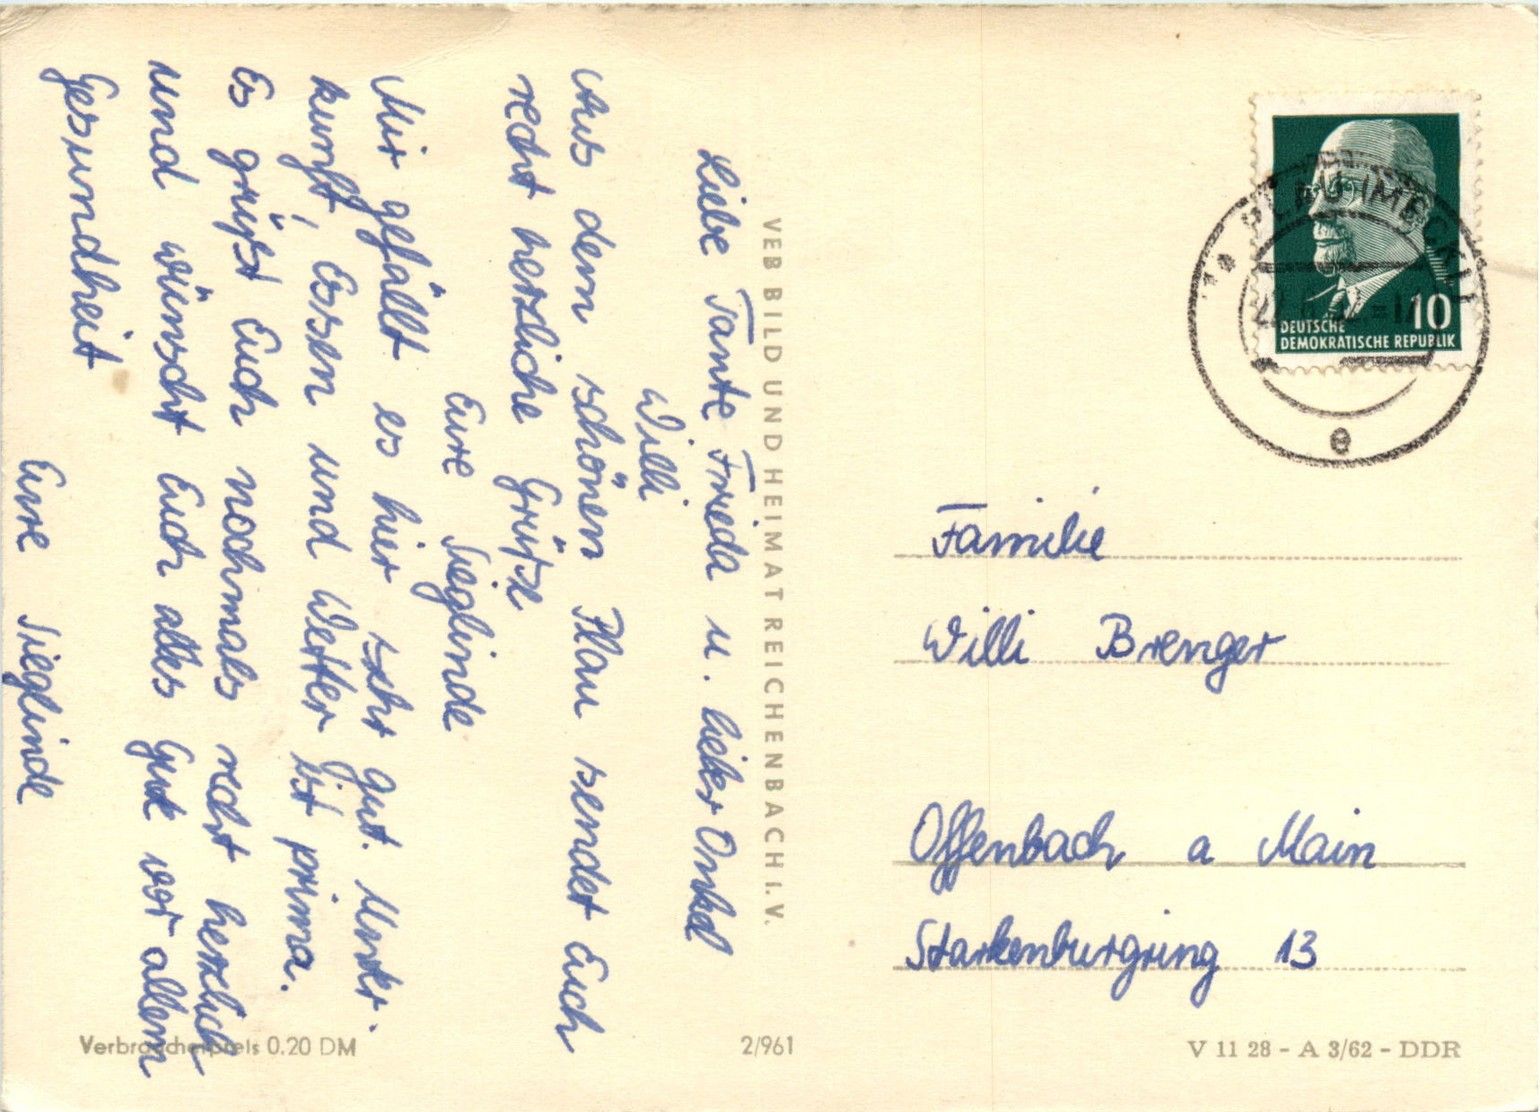 Liebe Tante Frieda u. lieber Onkel
Willi
Aus dem schönen Plau sendet Euch
recht herzliche Grüße
Eure Sieglinde
Mir gefällt es hier sehr gut. Unter-
kunft, Essen und Wetter ist prima.
Es grüßt Euch nochmals recht herzlich
und wünscht Euch alles Gute vor allem
Gesundheit
Eure Sieglinde
VEB BILD UND HEIMAT REICHENBACH I. V.
DEUTSCHE
DEMOKRATISCHE REPUBLIK
10
PLAU (MECKL)
e
Familie
Willi Brenger
Offenbach a Main
Starkenburgring 13
Verbraucherpreis 0.20 DM
2/961
V 11 28 - A 3/62 - DDR